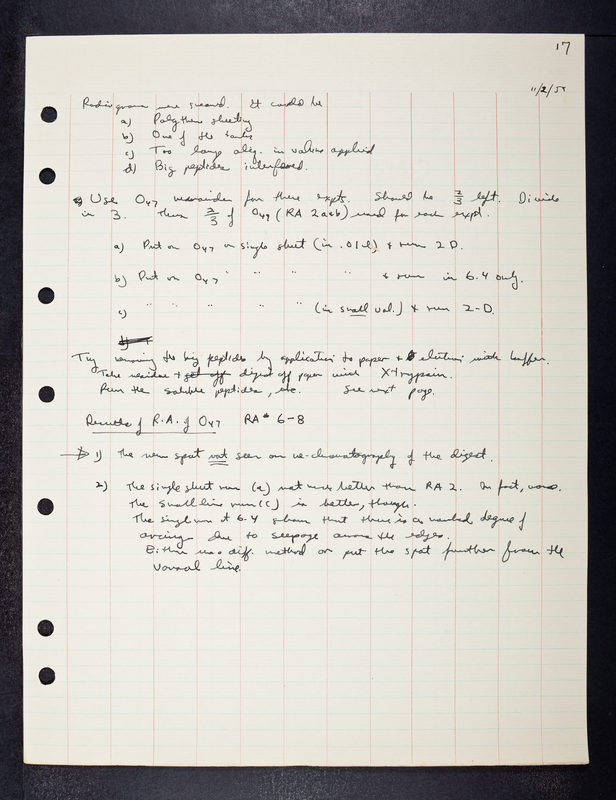 17
11/2/5
Radiograms were smeared. It could be
a) Polythene sheeting
b) One of the tanks
c) Too large aliq. in volume applied
d) Big peptides interfered.
Use O47 remainder for these expts. Should be 2/3 left. Divide
in 3. Then 2/3 of O49 (RA 2a+b) used for each expt.
a) Put on O47 on single sheet (in .01 ) & run 2 D.
b) Put on O47 " " " & run in 6.4 only.
c) " " " " " (in small vol.) & run 2-D.
Try removing the big peptides by application to paper & elution with buffer.
Take residue + digest off paper with Xtrypsin.
Run the soluble peptides, etc. See next page.
Results of R.A. of O47 RA# 6-8
1) The new spot not seen on re-chromatography of the digest.
2) The single sheet run (a) not much better than RA 2. In fact, worse.
The small line run (c) is better, though.
The single run at 6.4 shows that there is a marked degree of
arcing due to seepage across the edges.
Either use diff. method or put the spot further from the
normal line.